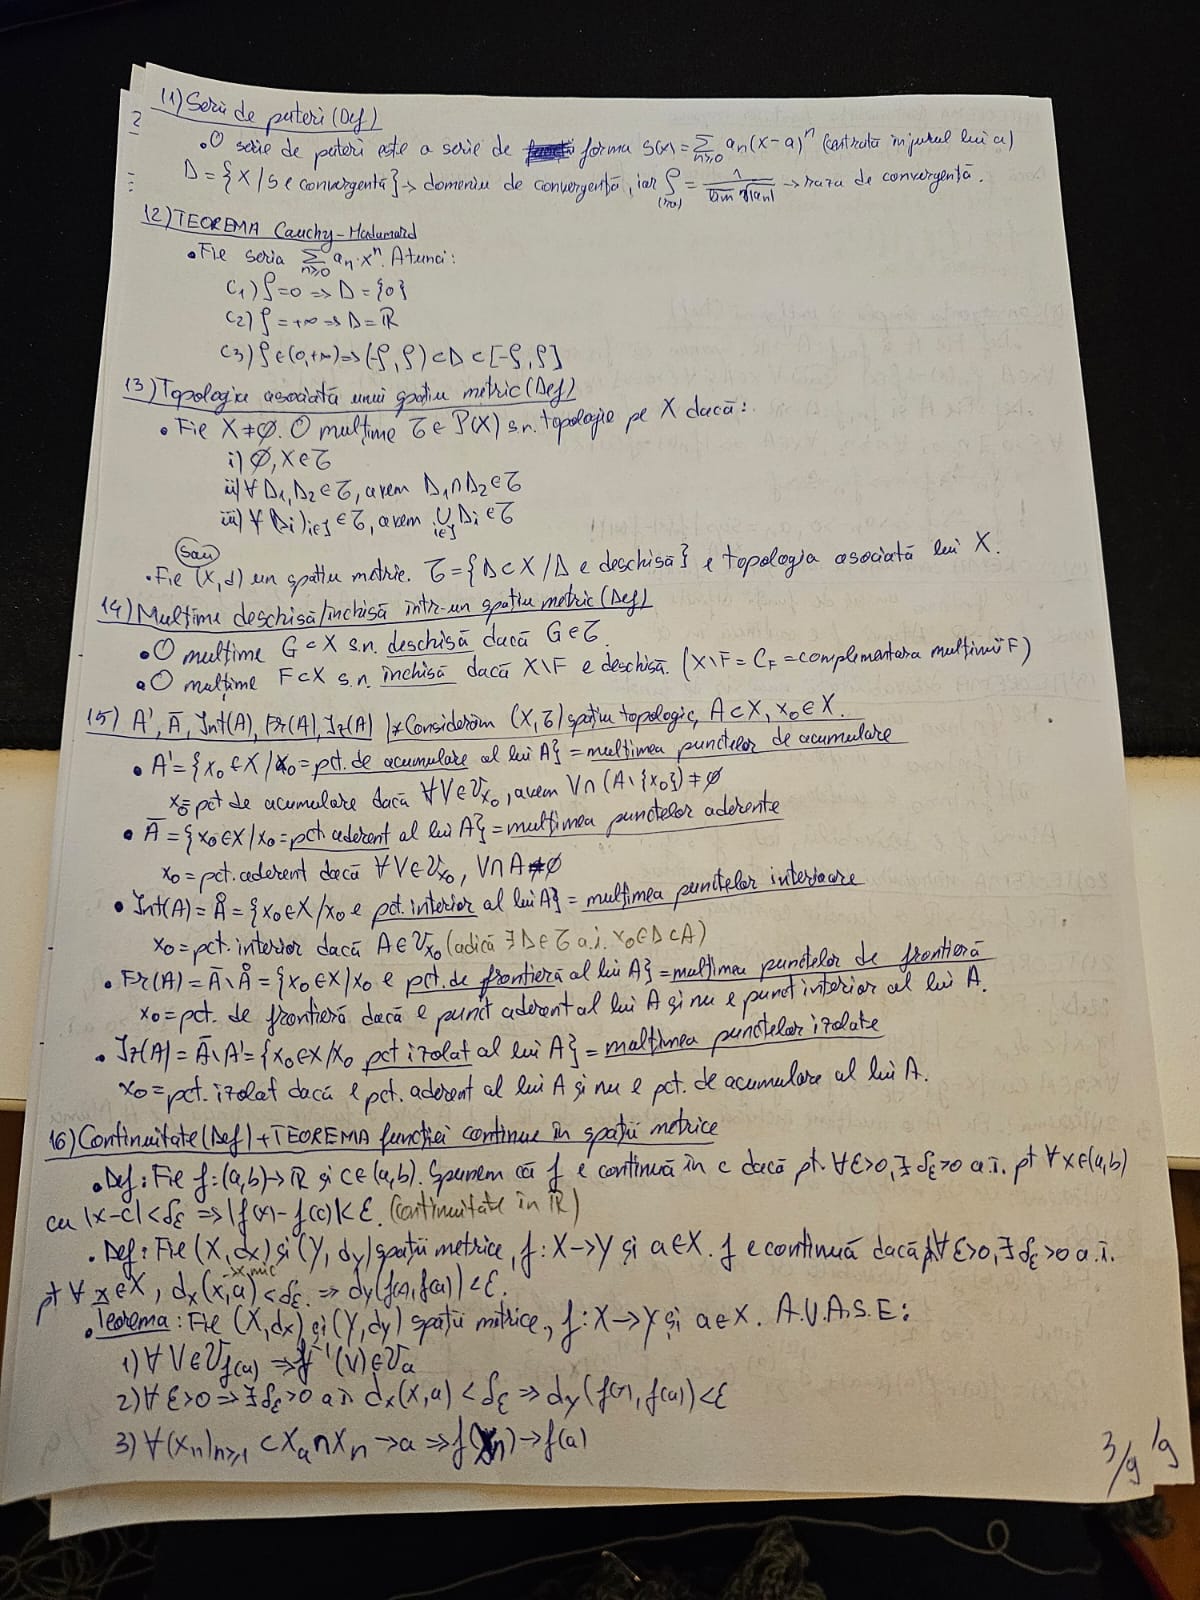 11) Serii de puteri (Def)
• O serie de puteri este o serie de forma S(x) = ∑_{n≥0} aₙ(x-a)ⁿ (centrată în jurul lui a)
D = {x / S e convergentă} → domeniu de convergență, iar ρ = 1/(lim ⁿ√|aₙ|) → raza de convergență.
12) TEOREMA Cauchy-Hadamard
• Fie seria ∑_{n≥0} aₙ·xⁿ. Atunci:
C1) ρ=0 => D = {0}
C2) ρ = +∞ => D = ℝ
C3) ρ ∈ (0,+∞) => (-ρ, ρ) ⊂ D ⊂ [-ρ, ρ]
13) Topologia asociată unui spațiu metric (Def)
• Fie X ≠ ∅. O mulțime τ ∈ P(X) s.n. topologie pe X dacă:
i) ∅, X ∈ τ
ii) ∀ D₁, D₂ ∈ τ, avem D₁ ∩ D₂ ∈ τ
iii) ∀ (Di)_{i∈J} ∈ τ, avem ⋃_{i∈J} Di ∈ τ
sau
• Fie (X, d) un spațiu metric. τ = {D ⊂ X / D e deschisă} e topologia asociată lui X.
14) Mulțime deschisă/închisă într-un spațiu metric (Def)
• O mulțime G ⊂ X s.n. deschisă dacă G ∈ τ.
• O mulțime F ⊂ X s.n. închisă dacă X\F e deschisă. (X\F = C_F = complementara mulțimii F)
15) A', Ā, Int(A), Fr(A), Iz(A) | * Considerăm (X, τ) spațiu topologic, A ⊂ X, x₀ ∈ X.
• A' = {x₀ ∈ X / x₀ = pct. de acumulare al lui A} = mulțimea punctelor de acumulare
x₀ = pct de acumulare dacă ∀ V ∈ 𝒱_{x₀}, avem V ∩ (A \ {x₀}) ≠ ∅
• Ā = {x₀ ∈ X / x₀ = pct. aderent al lui A} = mulțimea punctelor aderente
x₀ = pct. aderent dacă ∀ V ∈ 𝒱_{x₀}, V ∩ A ≠ ∅
• Int(A) = Å = {x₀ ∈ X / x₀ e pct. interior al lui A} = mulțimea punctelor interioare
x₀ = pct. interior dacă A ∈ 𝒱_{x₀} (adică ∃ D ∈ τ a.î. x₀ ∈ D ⊂ A)
• Fr(A) = Ā \ Å = {x₀ ∈ X / x₀ e pct. de frontieră al lui A} = mulțimea punctelor de frontieră
x₀ = pct. de frontieră dacă e punct aderent al lui A și nu e punct interior al lui A.
• Iz(A) = Ā \ A' = {x₀ ∈ X / x₀ pct izolat al lui A} = mulțimea punctelor izolate
x₀ = pct. izolat dacă e pct. aderent al lui A și nu e pct. de acumulare al lui A.
16) Continuitate (Def) + TEOREMA funcției continue în spații metrice
• Def: Fie f: (a,b) → ℝ și c ∈ (a,b). Spunem că f e continuă în c dacă pt. ∀ ε>0, ∃ δ_ε>0 a.î. pt ∀ x ∈ (a,b)
cu |x-c| < δ_ε => |f(x) - f(c)| < ε. (continuitate în ℝ)
• Def: Fie (X, dx) și (Y, dy) spații metrice, f: X → Y și a ∈ X. f e continuă dacă ∀ ε>0, ∃ δ_ε>0 a.î.
x mic
pt ∀ x ∈ X, dx(x, a) < δ_ε. => dy(f(x), f(a)) < ε.
• Teorema: Fie (X, dx) și (Y, dy) spații metrice, f: X → Y și a ∈ X. A.U.A.S.E:
1) ∀ V ∈ 𝒱_{f(a)} => f⁻¹(V) ∈ 𝒱ₐ
2) ∀ ε>0 => ∃ δ_ε>0 a.î. dx(x, a) < δ_ε => dy(f(x), f(a)) < ε
3) ∀ (xₙ)_{n≥1} ⊂ X a.î. xₙ → a => f(xₙ) → f(a)
3/9